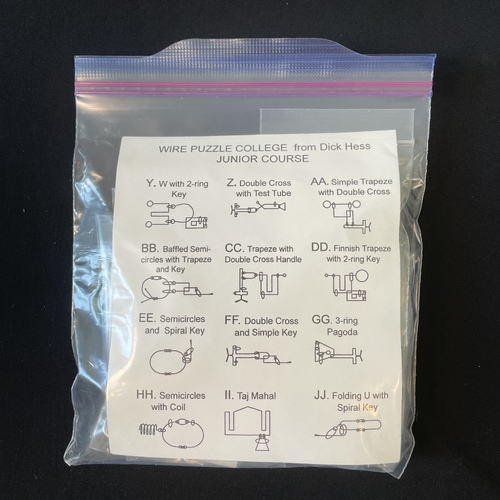 WIRE PUZZLE COLLEGE from Dick Hess
JUNIOR COURSE
Y. W with 2-ring
Key
Z. Double Cross
with Test Tube
AA. Simple Trapeze
with Double Cross
BB. Baffled Semi-
circles with Trapeze
and Key
CC. Trapeze with
Double Cross Handle
DD. Finnish Trapeze
with 2-ring Key
EE. Semicircles
and Spiral Key
FF. Double Cross
and Simple Key
GG. 3-ring
Pagoda
HH. Semicircles
with Coil
II. Taj Mahal
JJ. Folding U with
Spiral Key